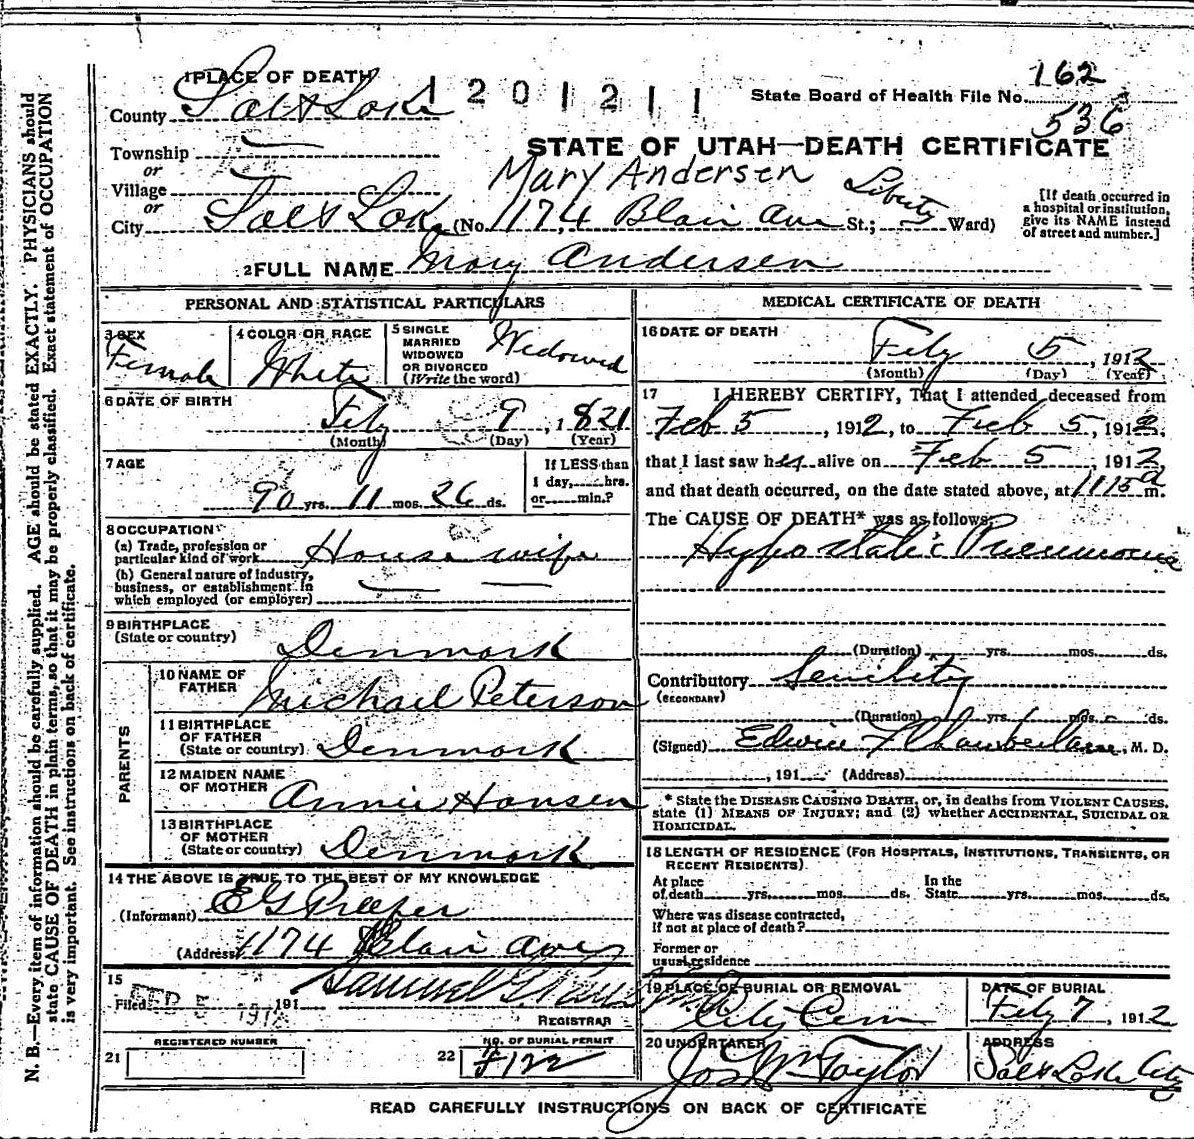 1 PLACE OF DEATH
1201211
State Board of Health File No. 162
536
County Salt Lake
STATE OF UTAH—DEATH CERTIFICATE
Township
or
Village
Mary Andersen
or
City Salt Lake (No. 1174 Blair Ave St.; Liberty Ward)
[If death occurred in
a hospital or institution,
give its NAME instead
of street and number.]
2 FULL NAME Mary Andersen
PERSONAL AND STATISTICAL PARTICULARS
3 SEX
Female
4 COLOR OR RACE
White
5 SINGLE
MARRIED
WIDOWED
OR DIVORCED
(Write the word)
Widowed
6 DATE OF BIRTH
Feby 9, 1821
(Month) (Day) (Year)
7 AGE
90 yrs. 11 mos. 26 ds.
If LESS than
1 day, hrs.
or min.?
8 OCCUPATION
(a) Trade, profession or
particular kind of work House wife
(b) General nature of industry,
business, or establishment in
which employed (or employer)
9 BIRTHPLACE
(State or country)
Denmark
PARENTS
10 NAME OF
FATHER
Michael Peterson
11 BIRTHPLACE
OF FATHER
(State or country) Denmark
12 MAIDEN NAME
OF MOTHER
Annie Hansen
13 BIRTHPLACE
OF MOTHER
(State or country) Denmark
14 THE ABOVE IS TRUE TO THE BEST OF MY KNOWLEDGE
(Informant) E G
(Address) 1174 Blair Ave
15
Filed FEB 5 1912 191
Samuel G.
REGISTRAR
REGISTERED NUMBER
21
NO. OF BURIAL PERMIT
22 F122
MEDICAL CERTIFICATE OF DEATH
16 DATE OF DEATH
Feby 5, 1912
(Month) (Day) (Year)
17 I HEREBY CERTIFY, That I attended deceased from
Feb 5, 1912, to Feb 5, 1912.
that I last saw her alive on Feb 5, 1912
and that death occurred, on the date stated above, at 1115 a m.
The CAUSE OF DEATH* was as follows:
Hypostatic Pneumonia
(Duration) yrs. mos. ds.
Contributory Senility
(SECONDARY)
(Duration) yrs. mos. ds.
(Signed) Edwin F Chamberlain, M. D.
, 191 (Address)
* State the DISEASE CAUSING DEATH, or, in deaths from VIOLENT CAUSES,
state (1) MEANS OF INJURY; and (2) whether ACCIDENTAL, SUICIDAL OR
HOMICIDAL.
18 LENGTH OF RESIDENCE (FOR HOSPITALS, INSTITUTIONS, TRANSIENTS, OR
RECENT RESIDENTS).
At place
of death yrs. mos. ds.
In the
State yrs. mos. ds.
Where was disease contracted,
if not at place of death?
Former or
usual residence
19 PLACE OF BURIAL OR REMOVAL
City Cem
DATE OF BURIAL
Feby 7, 1912
20 UNDERTAKER
Jos Wm Taylor
ADDRESS
Salt Lake City
READ CAREFULLY INSTRUCTIONS ON BACK OF CERTIFICATE
N. B.—Every item of information should be carefully supplied. AGE should be stated EXACTLY. PHYSICIANS should
state CAUSE OF DEATH in plain terms, so that it may be properly classified. Exact statement of OCCUPATION
is very important. See instructions on back of certificate.